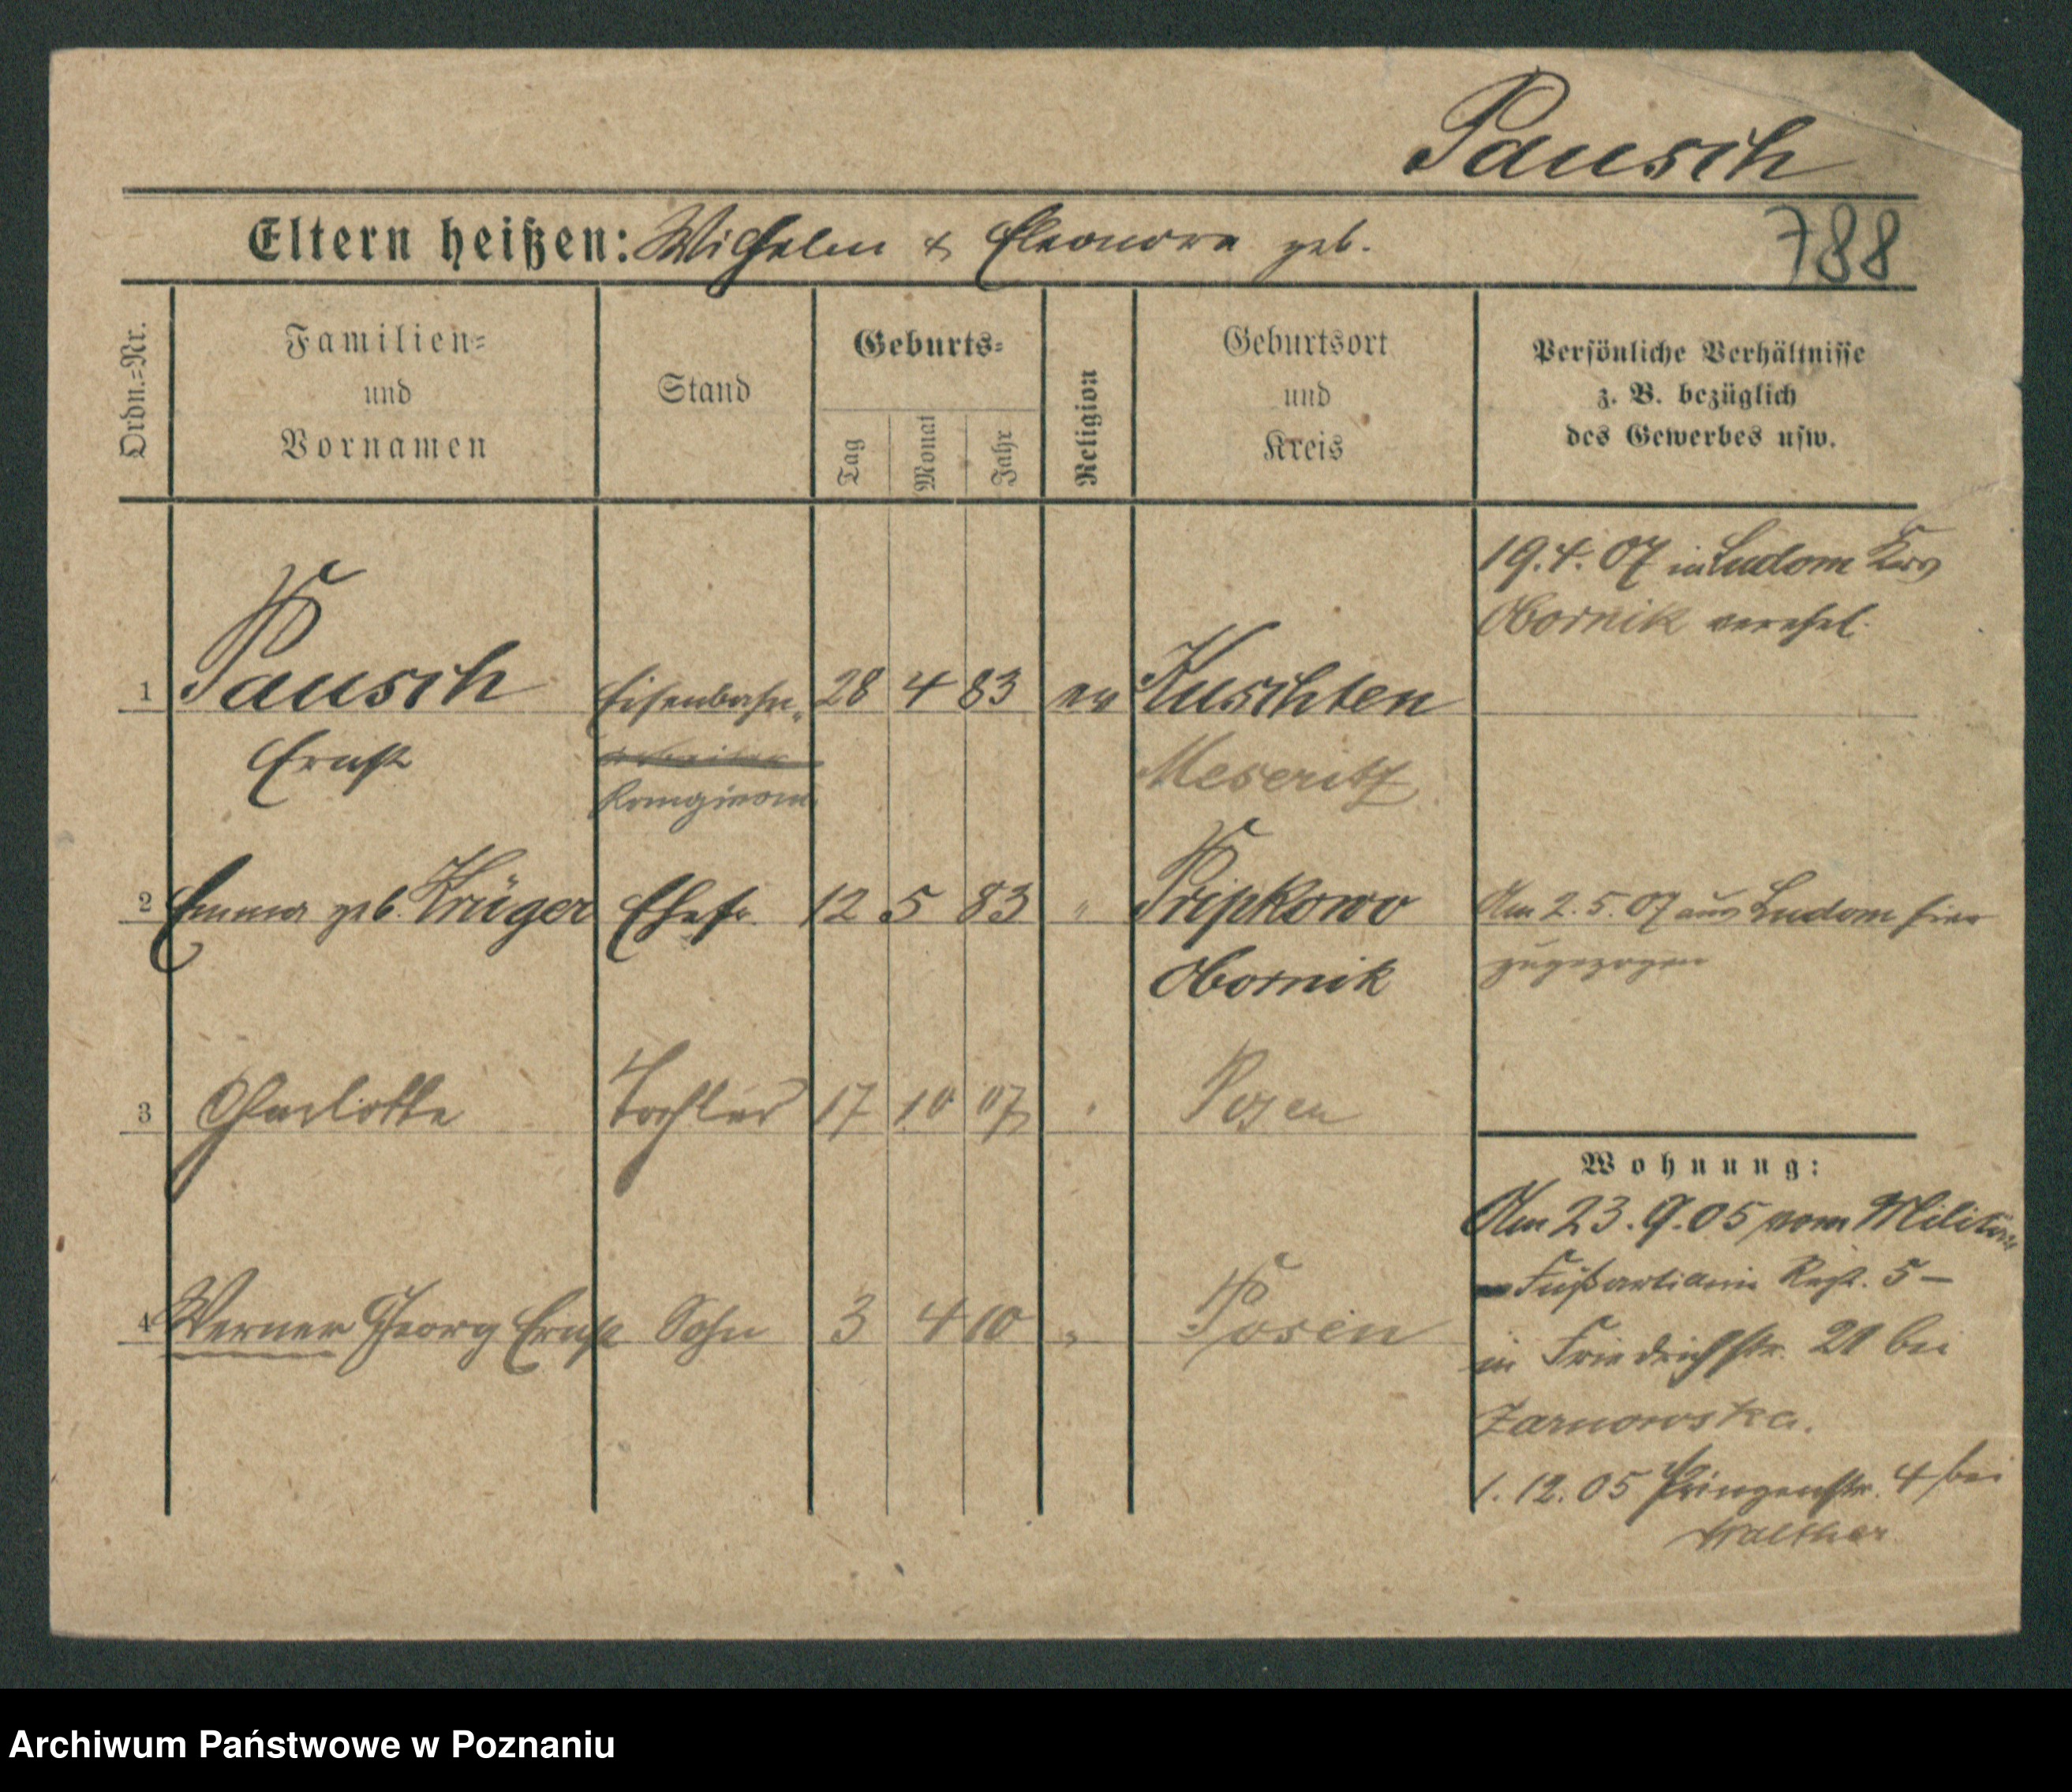 Pausch
Eltern heißen: Wilhelm & Eleonora geb.
788
Ordn.=Nr.
Familien=
und
Vornamen
Stand
Geburts=
Tag
Monat
Jahr
Religion
Geburtsort
und
Kreis
Persönliche Verhältnisse
z. B. bezüglich
des Gewerbes usw.
19.4.07 in Ludom Krs
Obornik verehel.
1 Pausch Eisenbahn- 28 4 83 ev Kuschten
Ernst Arbeiter Meseritz
2 Emma geb. Krüger Ehefr. 12 5 83 " Pripkowo
Obornik
Am 2.5.07 aus Ludom hier
zugezogen
3 Charlotte Tochter 17 10 07 " Posen
4 Werner Georg Ernst Sohn 3 4 10 " Posen
Wohnung:
Am 23.9.05 vom Militär
– Fußartillerie Regt. 5 –
in Friedrichstr. 21 bei
Zarnowska.
1.12.05 Prinzenstr. 4 bei
Walther
Archiwum Państwowe w Poznaniu